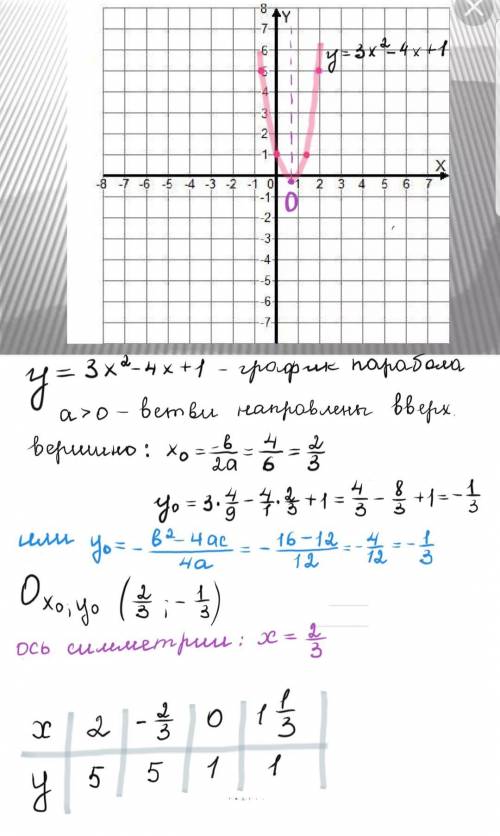 8 Y
7
6 y=3x²-4x+1
5
4
3
2
1 X
-8 -7 -6 -5 -4 -3 -2 -1 0 1 2 3 4 5 6 7
-1 O
-2
-3
-4
-5
-6
-7
y = 3x²-4x+1 - график парабола
a>0 - ветви направлены вверх.
вершино: x₀ = -b/2a = 4/6 = 2/3
y₀ = 3·4/9 - 4/1·2/3 + 1 = 4/3 - 8/3 + 1 = -1/3
или y₀ = - b²-4ac/4a = - 16-12/12 = -4/12 = -1/3
O x₀,y₀ (2/3 ; -1/3)
ось симметрии: x = 2/3
x | 2 | -2/3 | 0 | 1 1/3
y | 5 | 5 | 1 | 1